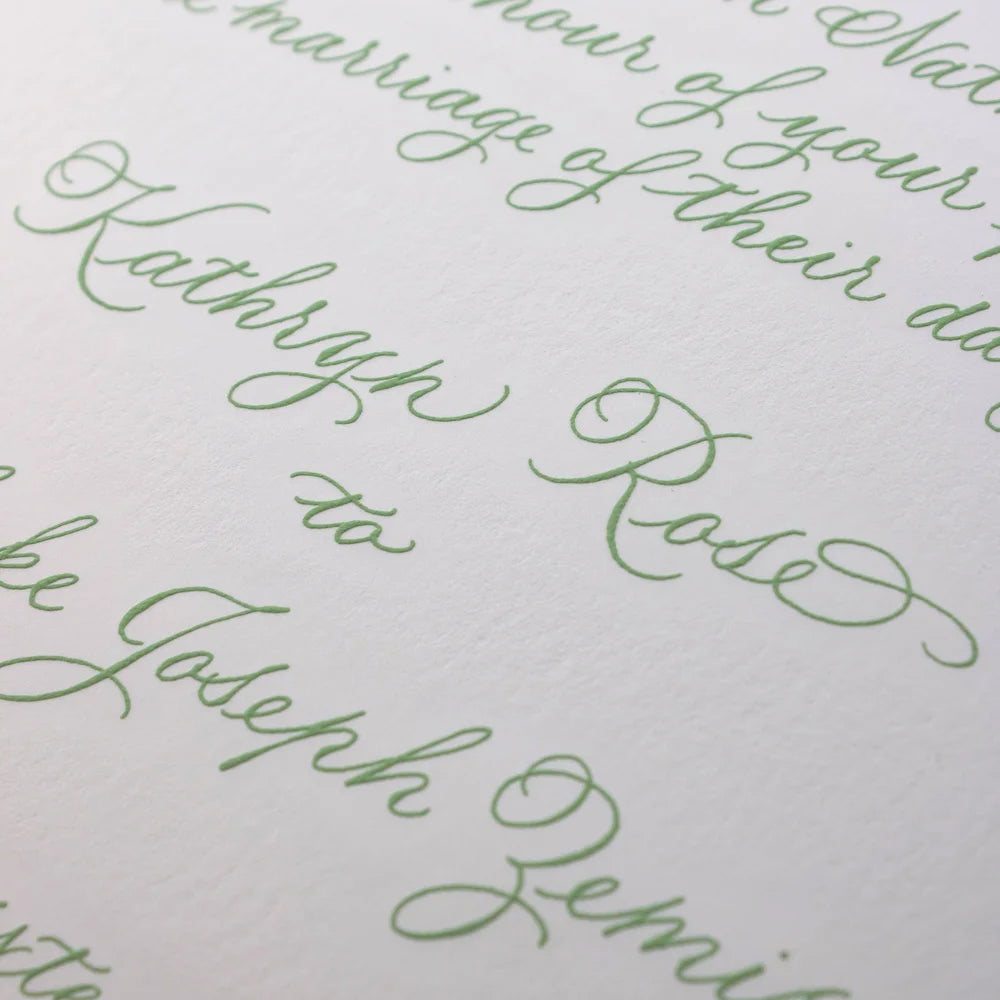 Nat
hour of your
marriage of their da
Kathryn Rose
to
ke Joseph Zemi
xte